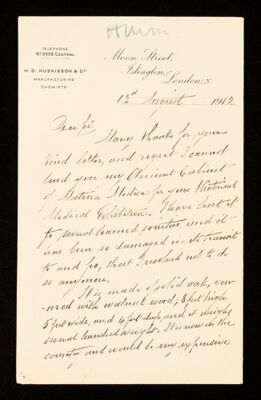 TELEPHONE
Nº 3556 CENTRAL.
H. O. HUSKISSON & Cº
MANUFACTURING
CHEMISTS.
Moon Street,
Islington,
London, N.
13th August 1912
Dear Sir
Many thanks for your
kind letter, and regret I cannot
lend you my Ancient Cabinet
of Materia Medica for your Historical
Medical Exhibition. I have lent it
to several learned societies and it
has been so damaged in its transit
to and fro, that I resolved not to do
so any more.
It is made of solid oak, ven-
-ered with walnut wood, 8 feet high
5 feet wide, and 4 feet deep, and it weighs
several hundredweight. It is now in the
country and would be very expensive